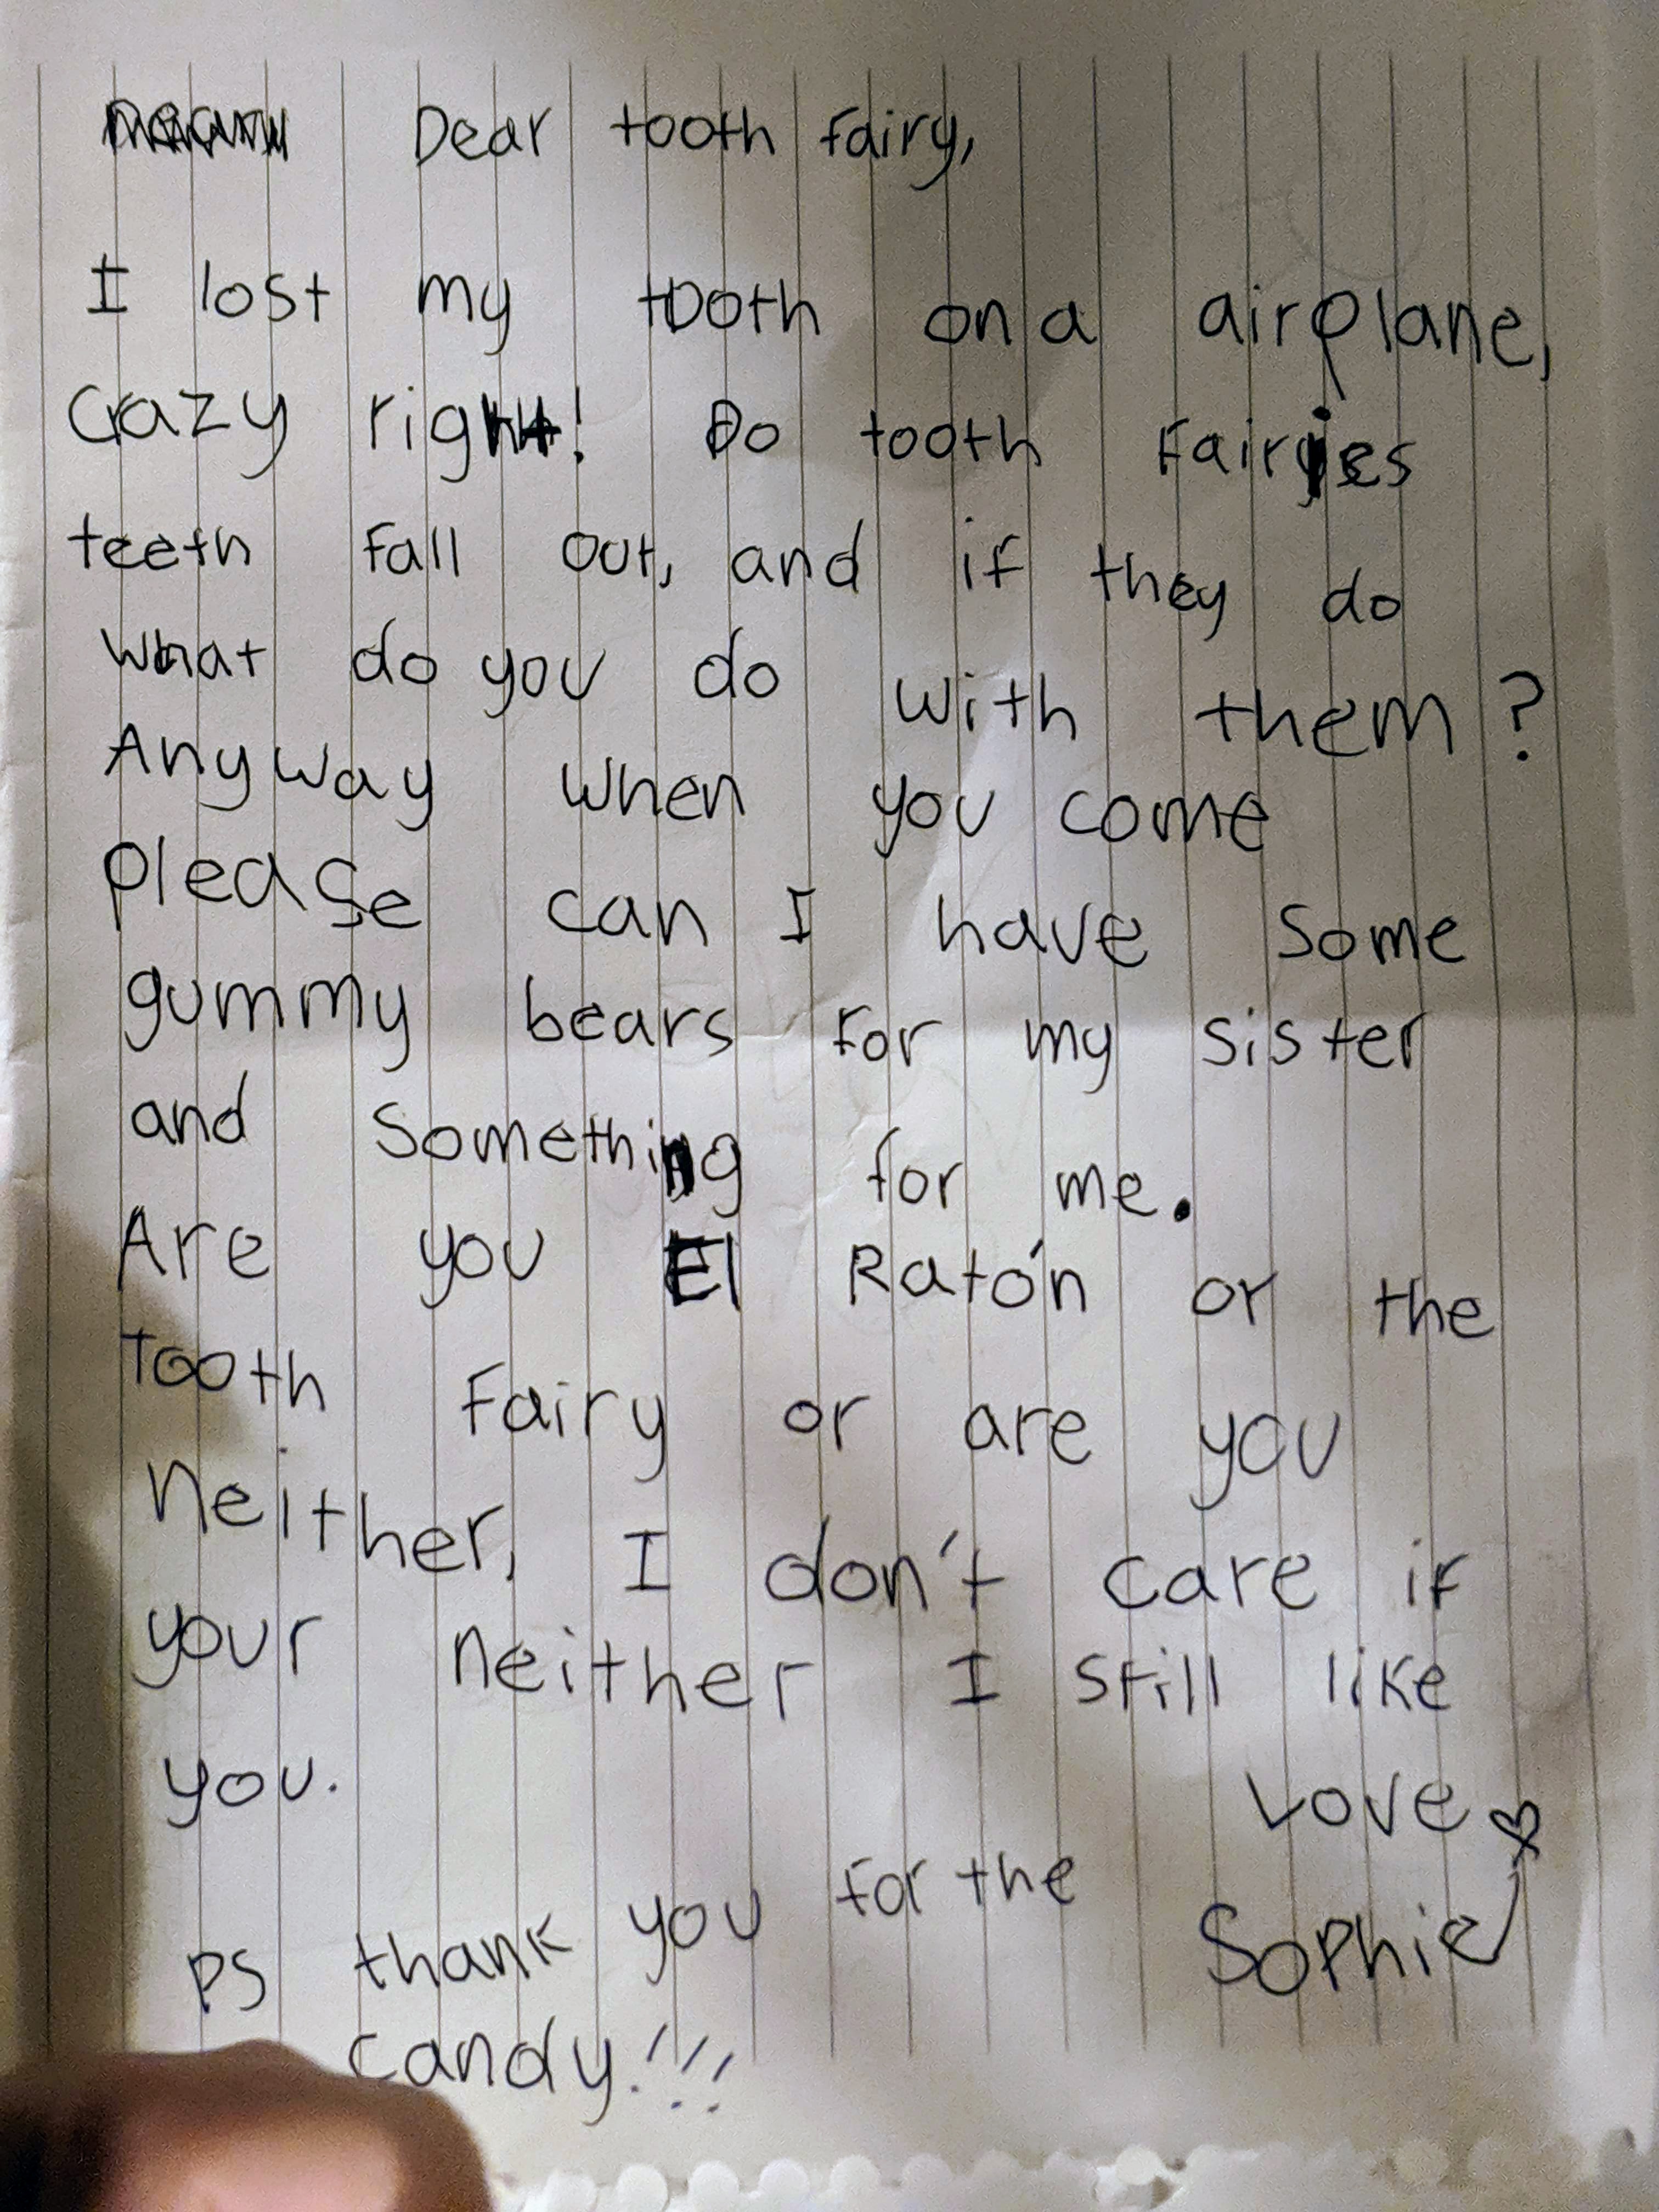 Dear tooth fairy,
I lost my tooth on a airplane,
Crazy right! Do tooth fairies
teeth fall out, and if they do
what do you do with them?
Anyway when you come
please can I have some
gummy bears for my sister
and something for me.
Are you El Ratón or the
Tooth Fairy or are you
neither, I don't care if
your neither I still like
you.
Love
Sophie
PS thank you for the
candy!!!